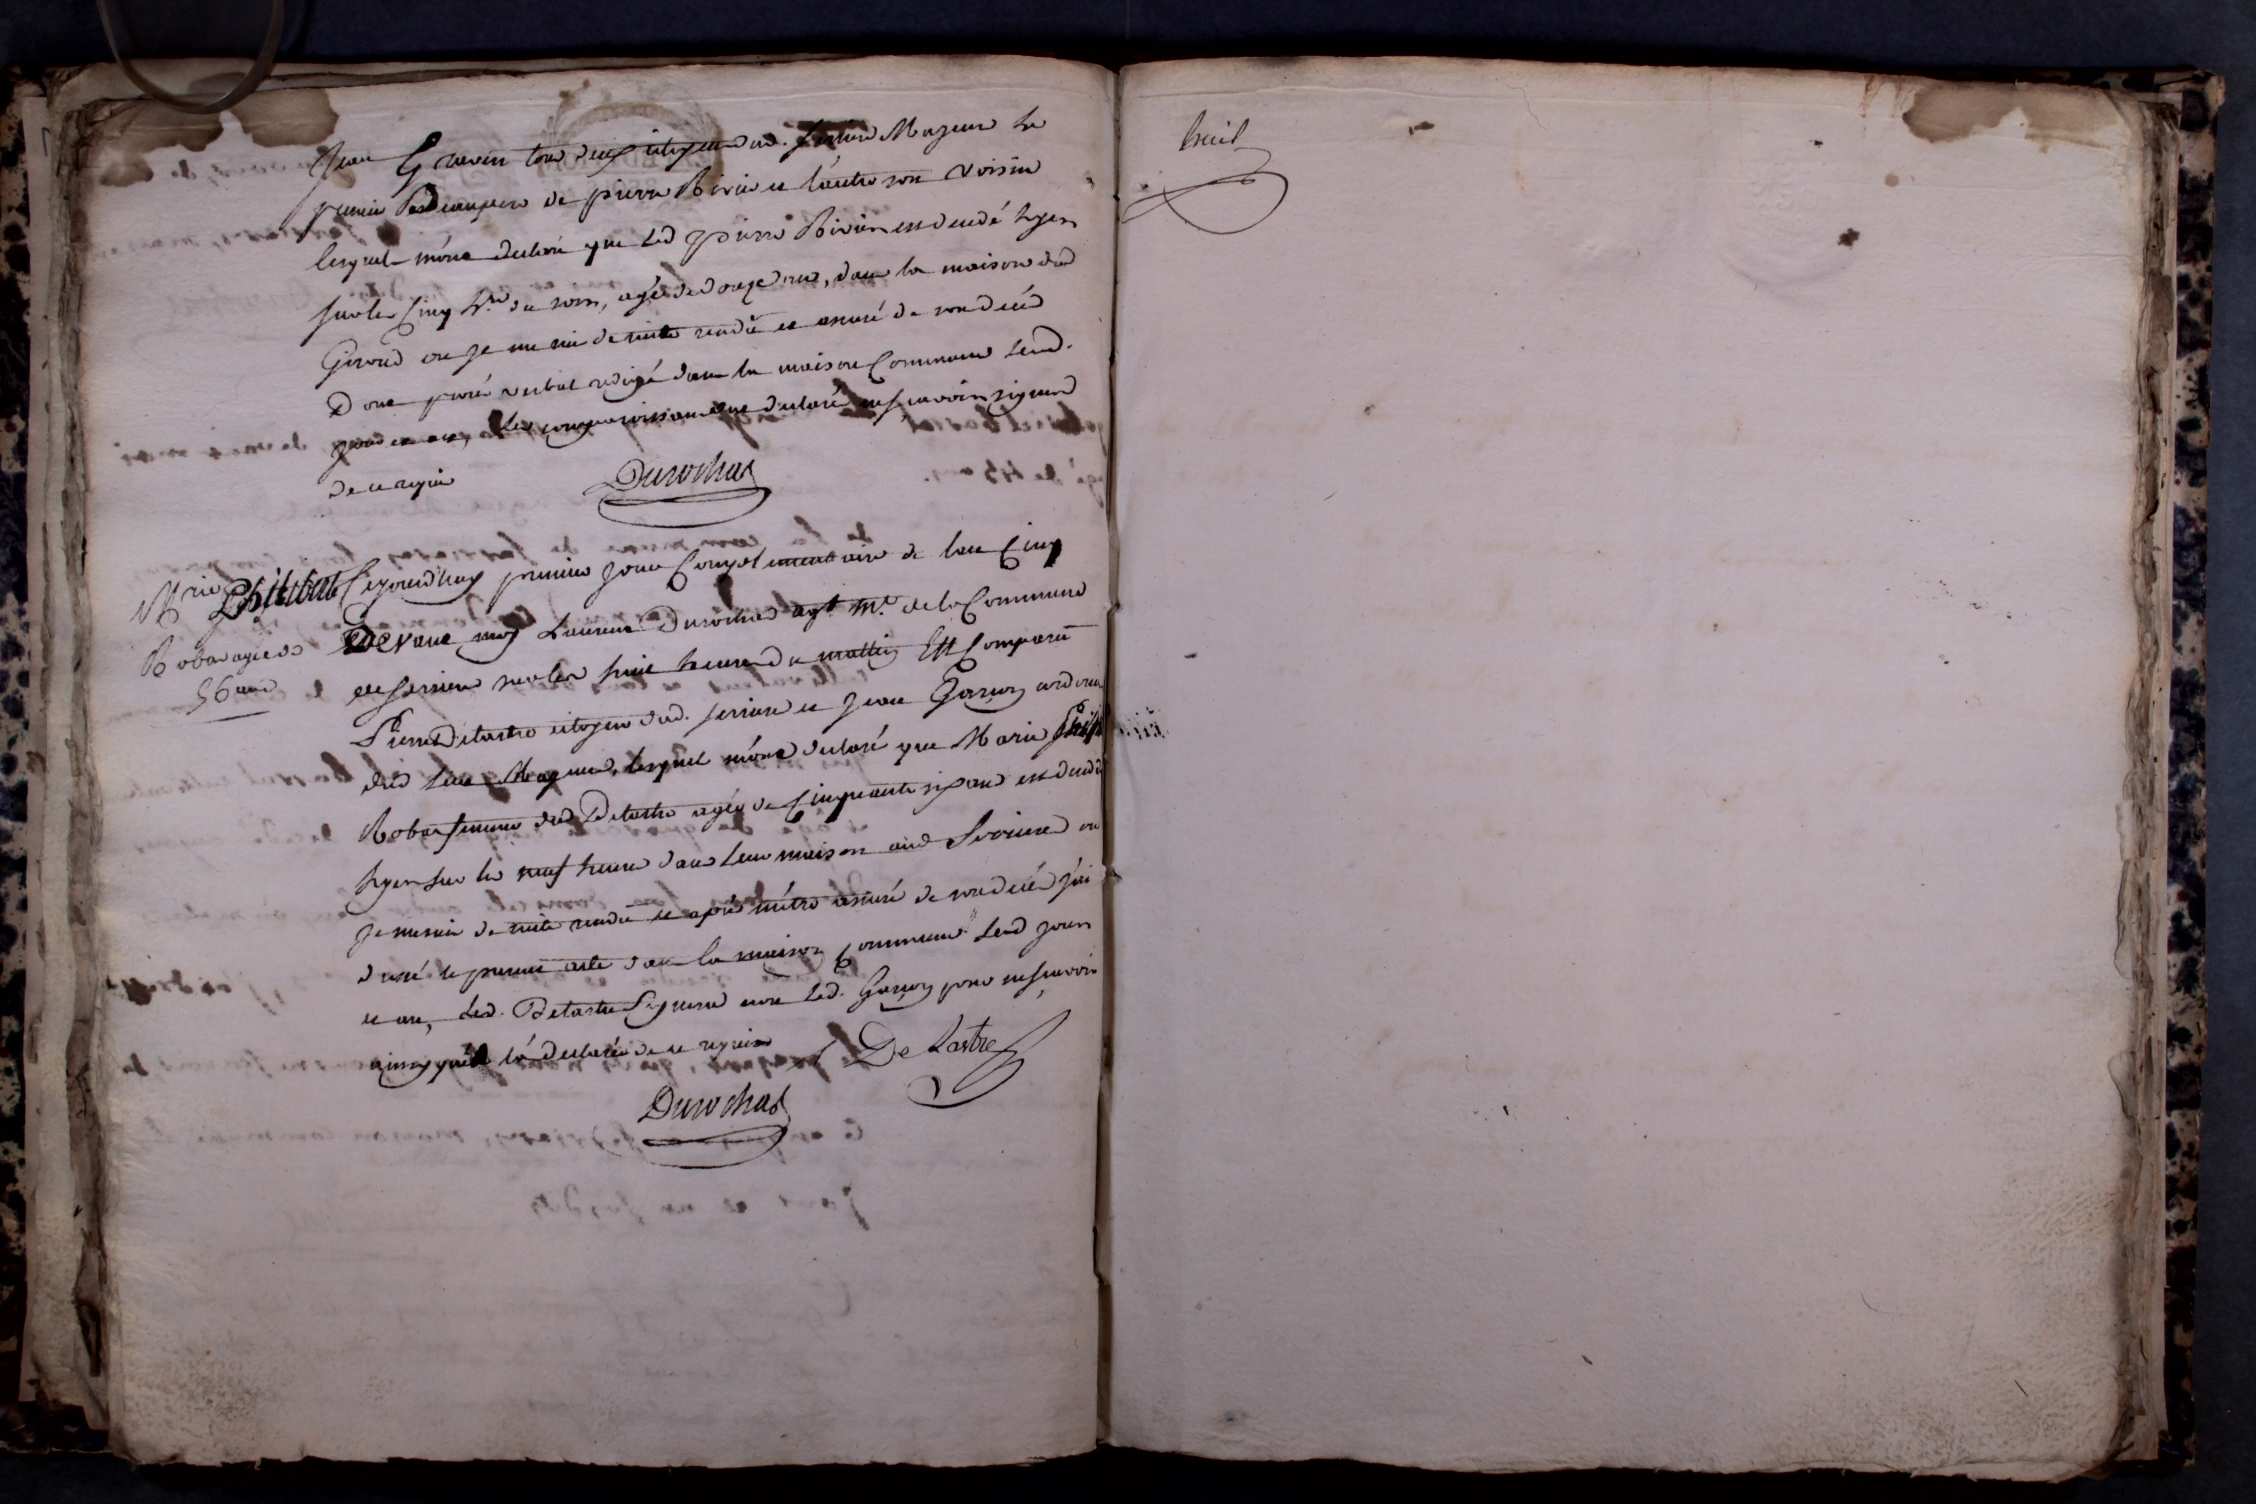 Jean Gravein tous deux citoyens dud. Serriere Majeurs le
premier Beaupere de pierre Rivier et l'autre son voisin
lesquels m'ont declaré que led pierre Rivier est decedé hyer
sur les Cinq h.res du soir, agé de douze ans, dans la maison dud
Giroud ou je me suis de suitte rendü et assuré de son decés
Dont procés verbal redigé dans la maison Commune lesd.
jour et an, les comparoissants ont declaré ne sçavoir signer
de ce requis
Durochas
Marie Philibert
Robas agée de
56 ans
Cejourdhuy premier jour Complementaire de l'an Cinq
Devant moy Laurens Durochas agt. M.l de la Commune
de Serriere sur les huit heures du mattin Est Comparu
Pierre Delastre citoyen dud. Serriere et Jean Garçon cordonier
dud lieu Majeurs, lesquels m'ont declaré que Marie
Robas femme dud Delastre agée de Cinquante six ans est decedée
hyer sur les neuf heures dans leur maison aud Serriere ou
je me suis de suite rendü et aprés m'être assuré de son decés j'ai
dressé le present acte dans la maison Commune lesd jour
et an, led. Delastre signera non led. Garçon pour ne sçavoir
ainsy qu'il l'a declaré de ce requis
De Lastre
Durochas
huit